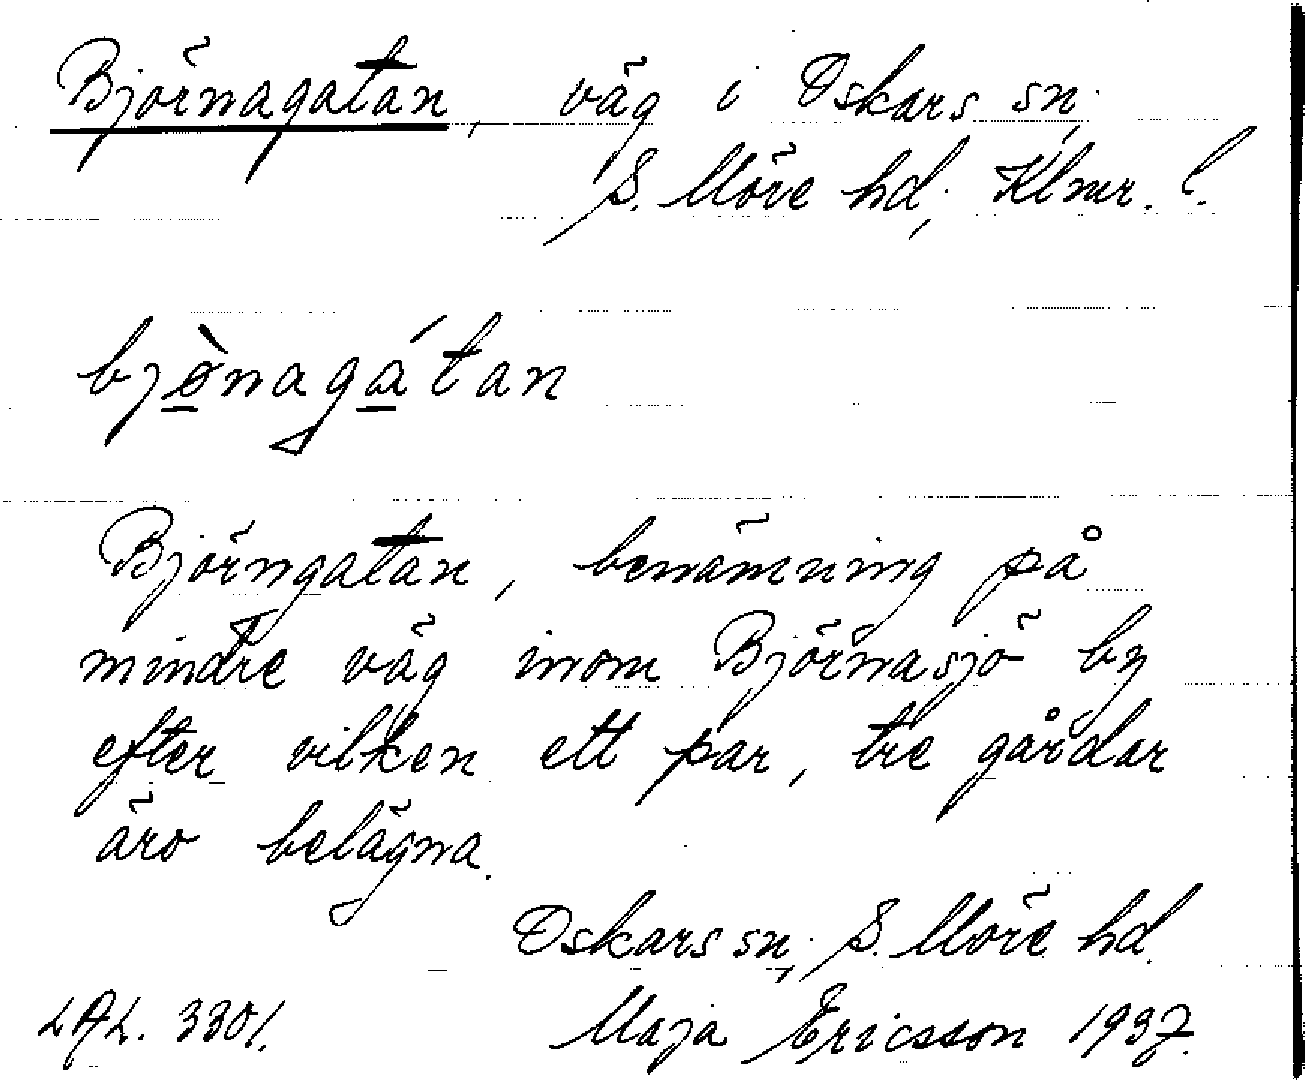 Björnagatan, väg i Oskars sn,
S. Möre hd, Klmr. l.
bjø̀nagátan
Björngatan, benämning på
mindre väg inom Björnasjö by
efter vilken ett par, tre gårdar
äro belägna.
Oskars sn, S. Möre hd.
LAL. 3301. Maja Ericsson 1937.